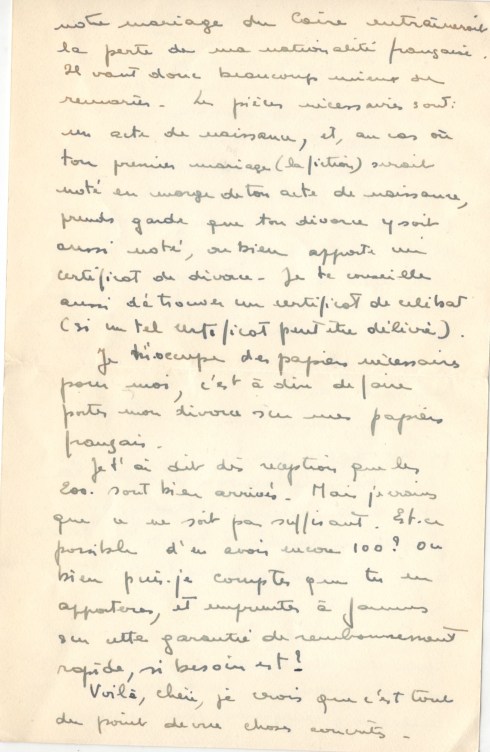 notre mariage du Caire entraînerait
la perte de ma nationalité française.
Il vaut donc beaucoup mieux se
remarier - Les pièces nécessaires sont:
un acte de naissance, et, au cas où
ton premier mariage (la fiction) serait
noté en marge de ton acte de naissance,
prends garde que ton divorce y soit
aussi noté, ou bien apporte un
certificat de divorce - Je te conseille
aussi de trouver un certificat de celibat
(si un tel certificat peut être délivré).
Je m'occupe des papiers nécessaires
pour moi, c'est à dire de faire
porter mon divorce sur mes papiers
français.
Je t'ai dit dès reception que les
200. sont bien arrivés - Mais je crains
que ce ne soit pas suffisant. Est-ce
possible d'en avoir encore 100? Ou
bien puis-je compter que tu en
apporteras, et emprunter à
sur cette garantie de remboursement
rapide, si besoin est?
Voilà, chéri, je crois que c'est tout
du point de vue choses concrètes -